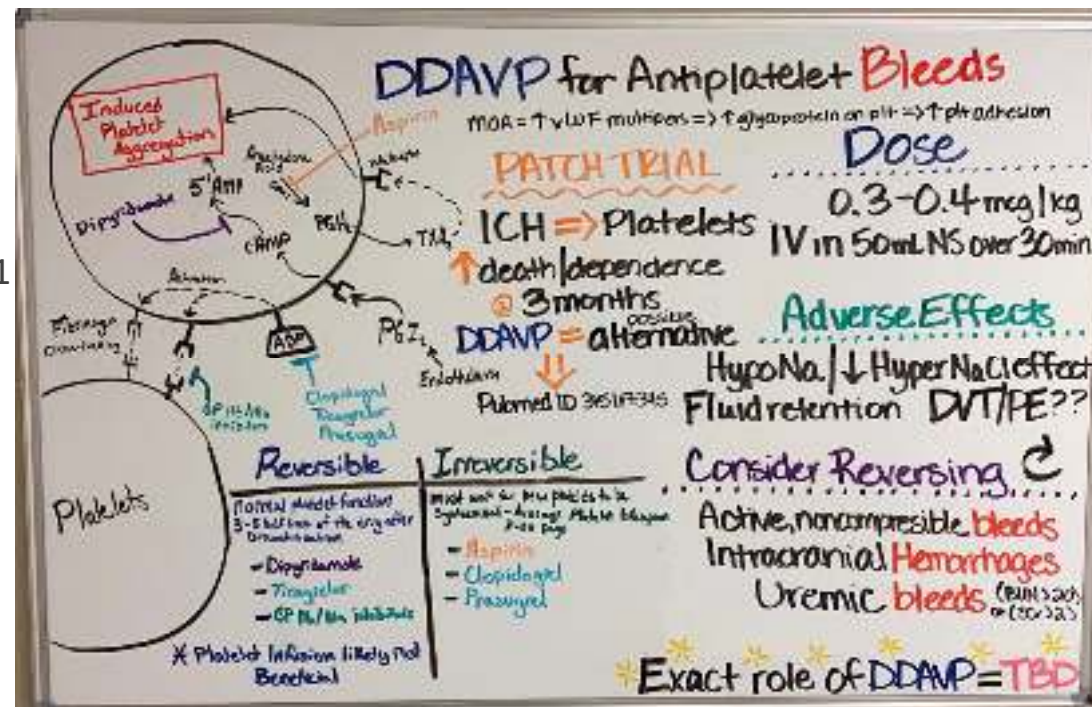 DDAVP for Antiplatelet Bleeds
MOA = ↑ vWF multimers => ↑ glycoprotein on plt => ↑ plt adhesion
Induced
Platelet
Aggregation
Aspirin
Acid
5' AMP
Dipyridamole
cAMP
PGH₂
TXA₂
PGI₂
Endothelium
Activation
Fibrinogen
Crosslinking
ADP
Clopidogrel
Ticagrelor
Prasugrel
GP IIb/IIIa
inhibitors
Platelets
1
PATCH TRIAL
ICH => Platelets
↑ death/dependence
@ 3 months
DDAVP = possible alternative
Pubmed ID
Dose
0.3-0.4 mcg/kg
IV in 50mL NS over 30min
Adverse Effects
HypoNa/↓HyperNaCl effect
Fluid retention DVT/PE??
Consider Reversing
Active, noncompresible bleeds
Intracranial Hemorrhages
Uremic bleeds
Reversible
Normal platelet function
3-5 half lives of the drug after
Discontinuation
- Dipyridamole
- Ticagrelor
- GP IIb/IIIa inhibitors
* Platelet Infusion likely not
Beneficial
Irreversible
must wait for new platelets to be
Synthesized - Average Platelet lifespan
days
- Aspirin
- Clopidogrel
- Prasugrel
Exact role of DDAVP = TBD